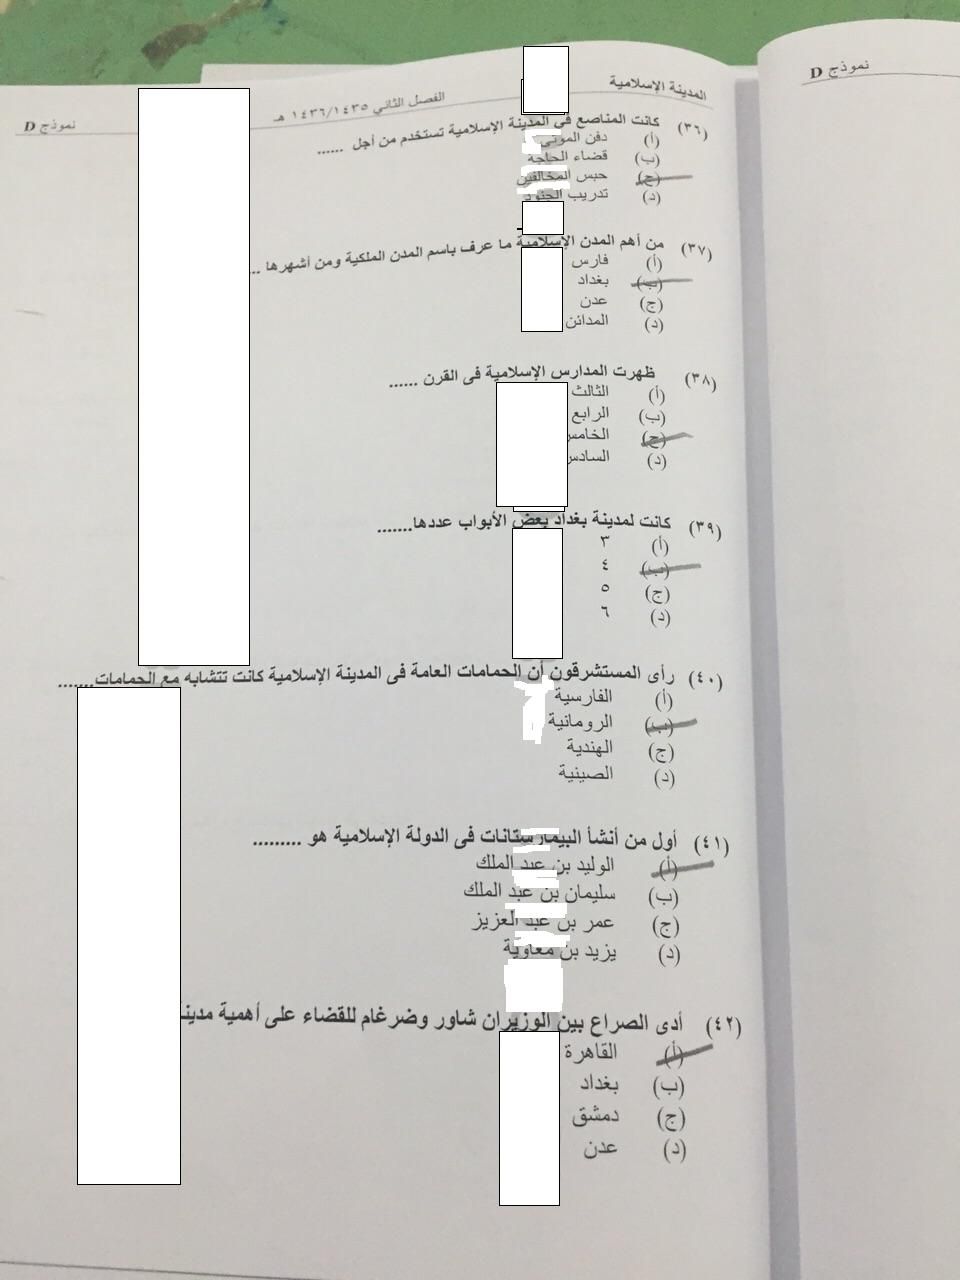 نموذج D
المدينة الإسلامية
الفصل الثاني ١٤٣٦/١٤٣٥ هـ
نموذج D
(٣٦) كانت المناصع فى المدينة الإسلامية تستخدم من أجل ......
(أ) دفن الموتى
(ب) قضاء الحاجة
(ج) حبس المخالفين
(د) تدريب الجنود
(٣٧) من أهم المدن الإسلامية ما عرف باسم المدن الملكية ومن أشهرها ...
(أ) فارس
(ب) بغداد
(ج) عدن
(د) المدائن
(٣٨) ظهرت المدارس الإسلامية فى القرن ......
(أ) الثالث
(ب) الرابع
(ج) الخامس
(د) السادس
(٣٩) كانت لمدينة بغداد بعض الأبواب عددها.......
(أ) ٣
(ب) ٤
(ج) ٥
(د) ٦
(٤٠) رأى المستشرقون أن الحمامات العامة فى المدينة الإسلامية كانت تتشابه مع الحمامات.......
(أ) الفارسية
(ب) الرومانية
(ج) الهندية
(د) الصينية
(٤١) أول من أنشأ البيمارستانات فى الدولة الإسلامية هو .........
(أ) الوليد بن عبد الملك
(ب) سليمان بن عبد الملك
(ج) عمر بن عبد العزيز
(د) يزيد بن معاوية
(٤٢) أدى الصراع بين الوزيران شاور وضرغام للقضاء على أهمية مدينة
(أ) القاهرة
(ب) بغداد
(ج) دمشق
(د) عدن